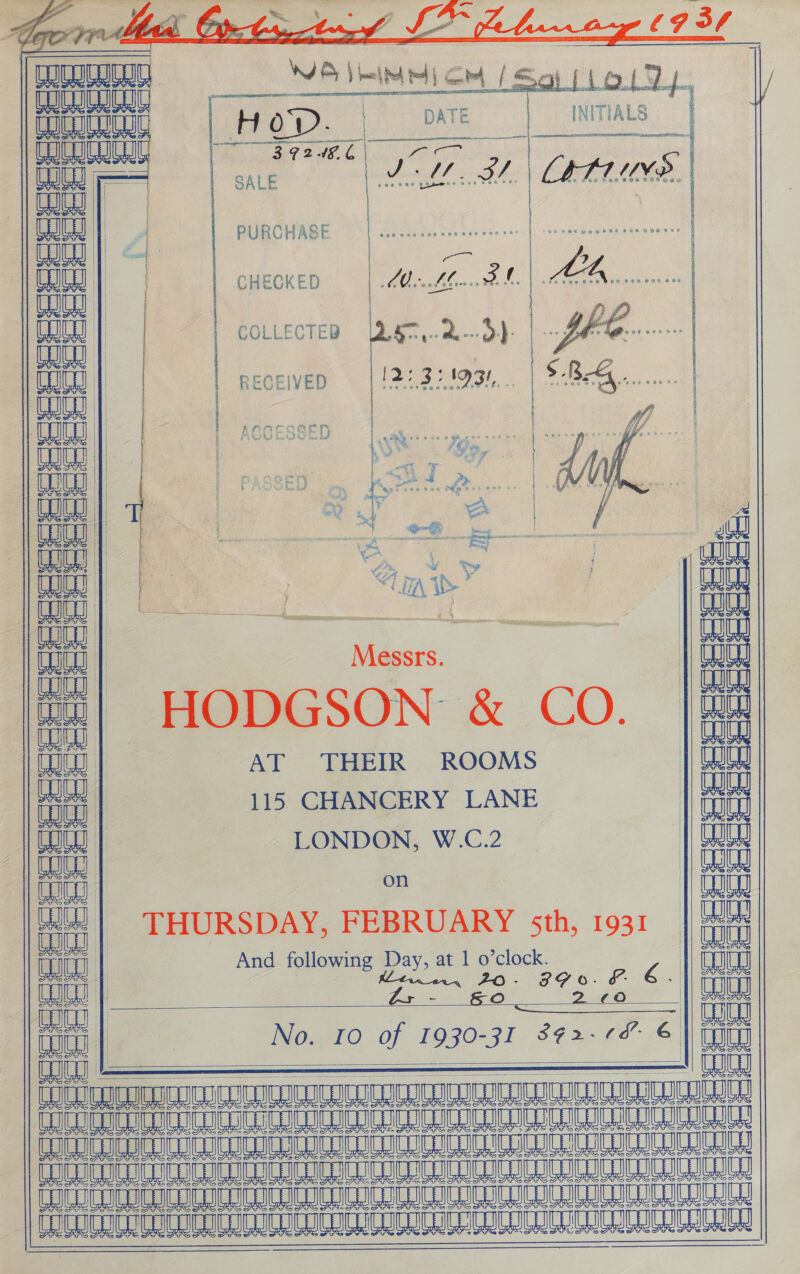 5th February 1931
HOD. DATE INITIALS
392.18.6
SALE 5.11.31
PURCHASE
CHECKED 10.11.31
COLLECTED 25.2.31
RECEIVED 12:3:1931
ACCESSED
PASSED
T
Messrs.
HODGSON & CO.
AT THEIR ROOMS
115 CHANCERY LANE
LONDON, W.C.2
on
THURSDAY, FEBRUARY 5th, 1931
And following Day, at 1 o’clock.
20. 390. 8. 6.
80 2 10
No. 10 of 1930-31 392.18.6